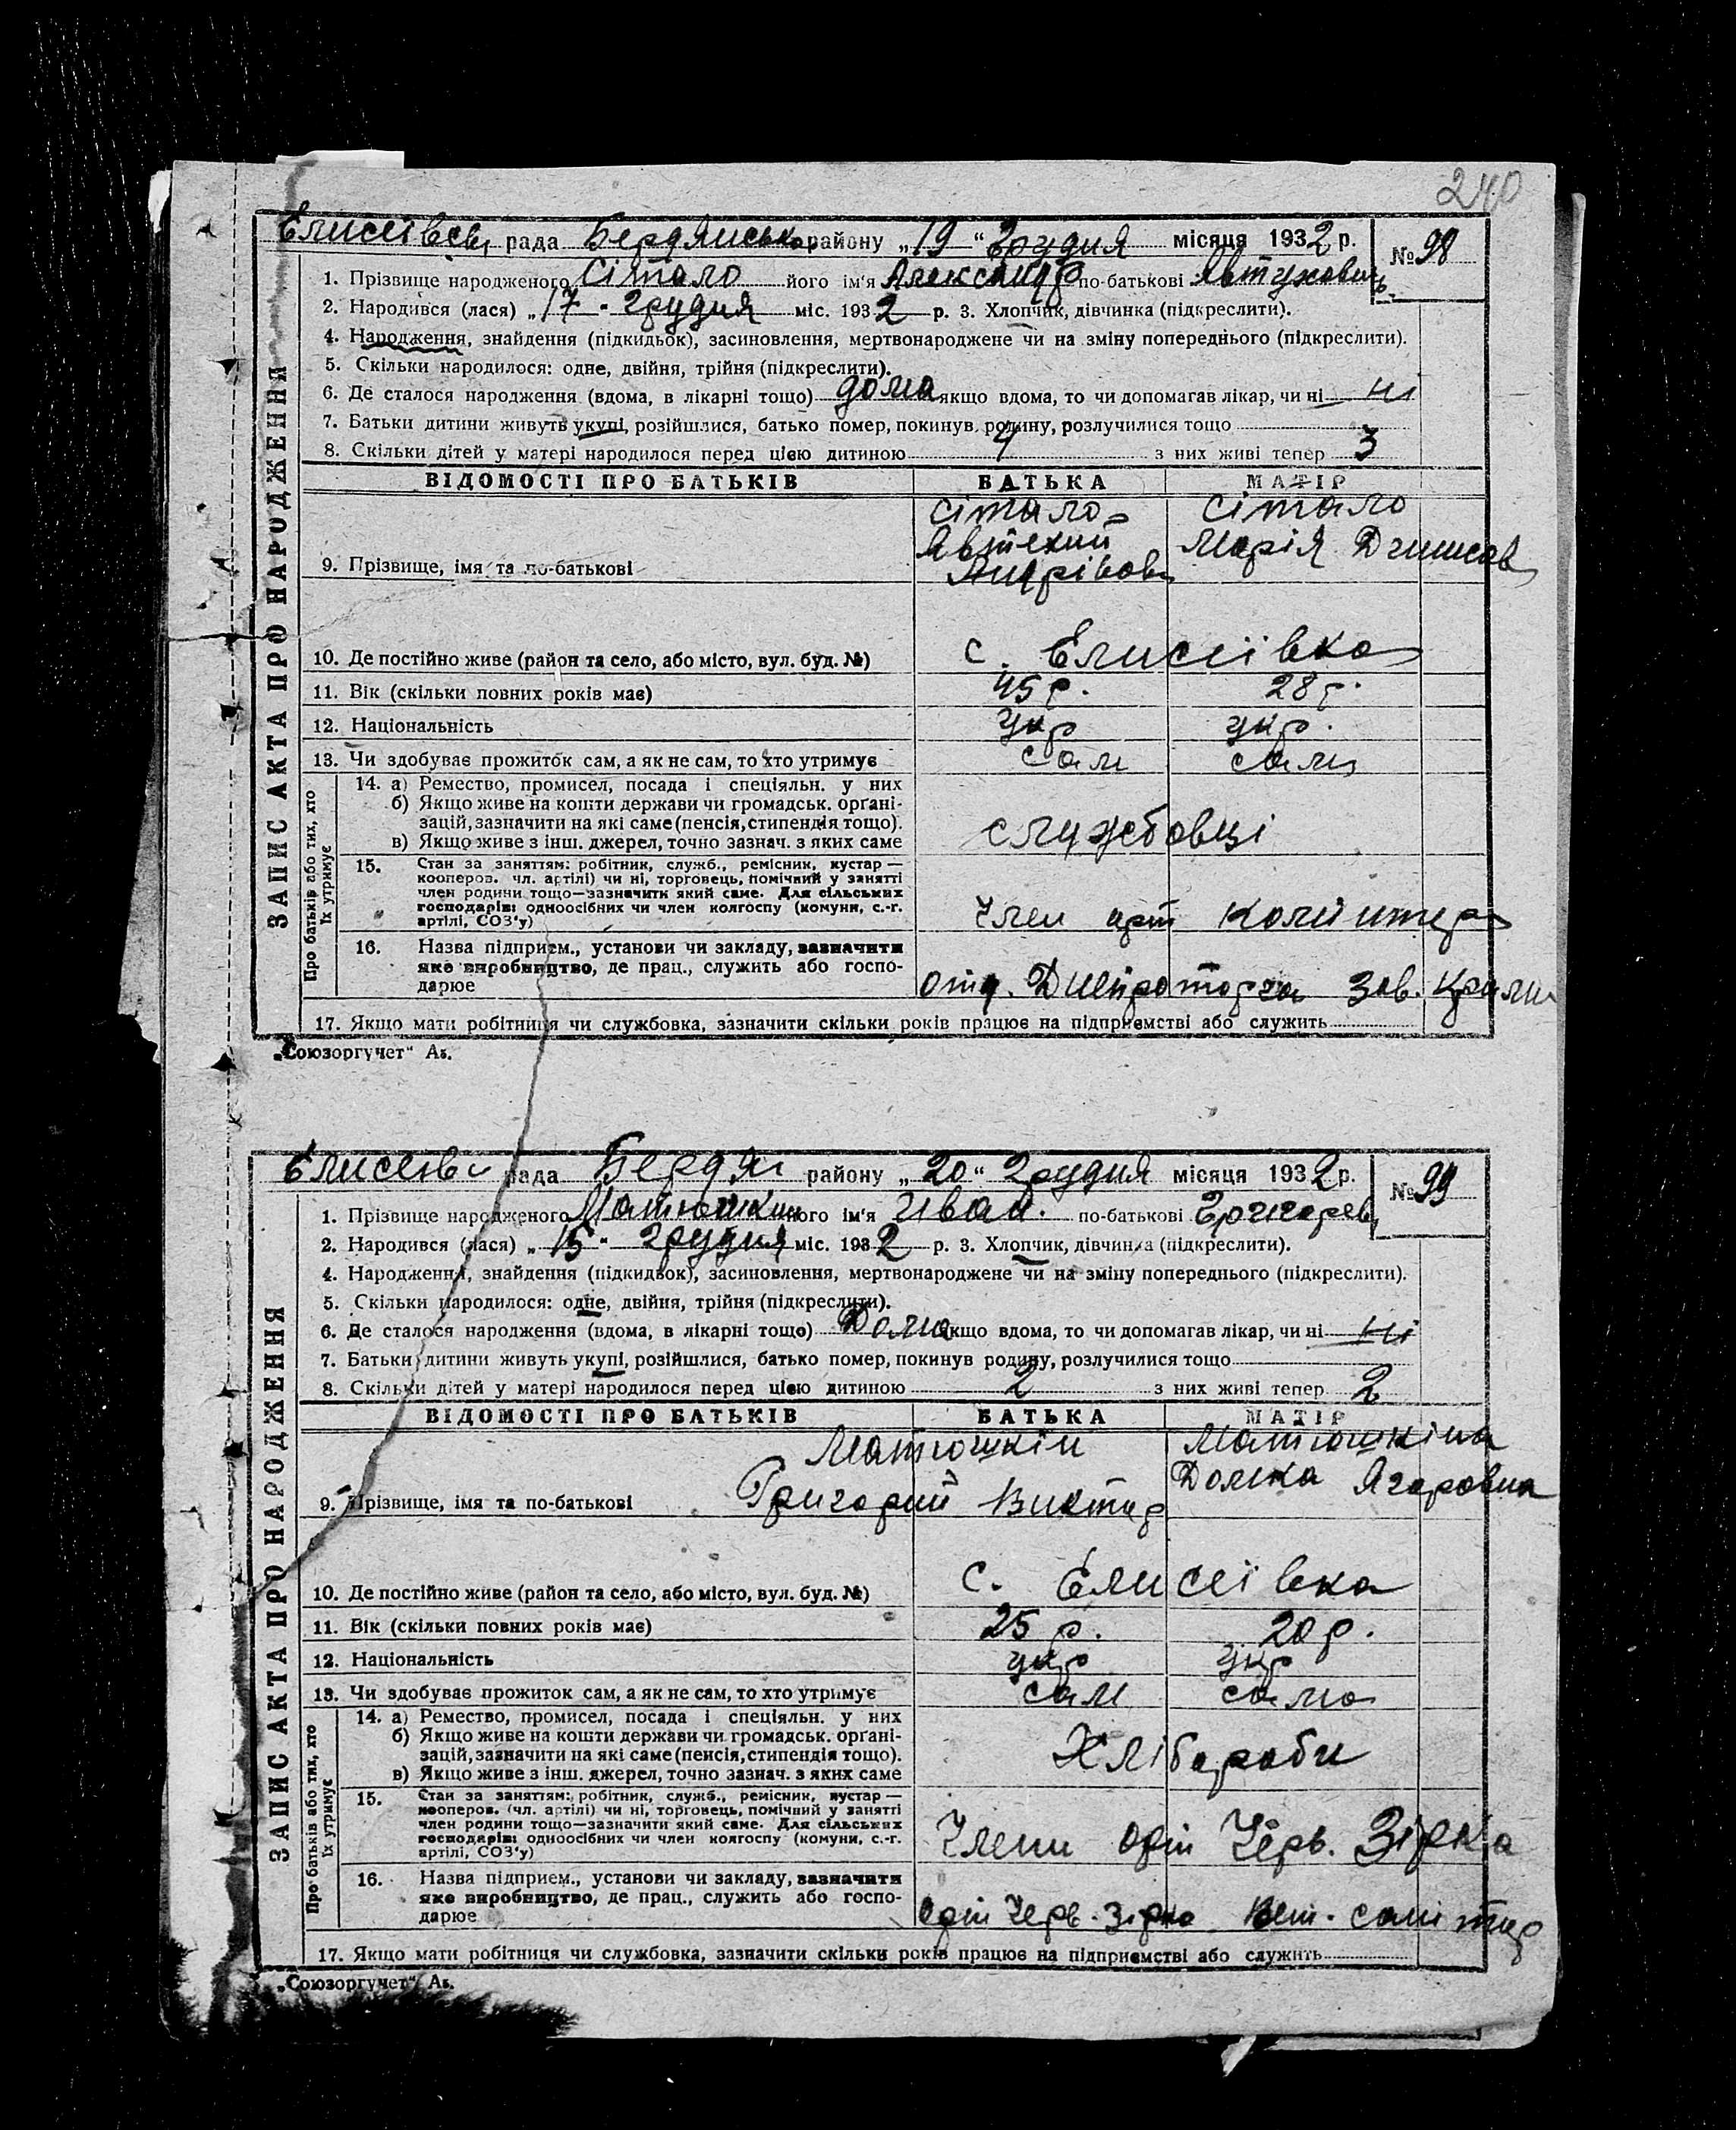 240
Єлисеївська рада Бердянського району „19“ Грудня місяця 1932 р. № 98
1. Прізвище народженого Сітало його ім'я Александр по-батькові Явтухович
2. Народився (лася) „17“ грудня міс. 1932 р. 3. Хлопчик, дівчинка (підкреслити).
4. Народження, знайдення (підкидьок), засиновлення, мертвонароджене чи на зміну попереднього (підкреслити).
5. Скільки народилося: одне, двійня, трійня (підкреслити).
6. Де сталося народження (вдома, в лікарні тощо) дома якщо вдома, то чи допомагав лікар, чи ні ні
7. Батьки дитини живуть укупі, розійшлися, батько помер, покинув родину, розлучилися тощо
8. Скільки дітей у матері народилося перед цією дитиною 4 з них живі тепер 3
ВІДОМОСТІ ПРО БАТЬКІВ БАТЬКА МАТІР
Сітало Сітало
Марія
9. Прізвище, імя та по-батькові Андрійов
10. Де постійно живе (район та село, або місто, вул. буд. №) с. Єлисеївка
11. Вік (скільки повних років має) 45 р. 28 р.
12. Національність укр укр.
13. Чи здобуває прожиток сам, а як не сам, то хто утримує сам сама
14. а) Ремество, промисел, посада і спеціяльн. у них
б) Якщо живе на кошти держави чи громадськ. орґані-
зацій, зазначити на які саме (пенсія, стипендія тощо).
в) Якщо живе з інш. джерел, точно зазнач. з яких саме службовці
15. Стан за заняттям: робітник, служб., ремісник, кустар —
кооперов. чл. артілі) чи ні, торговець, помічний у занятті
член родини тощо—зазначити який саме. Для сільських
господарів: одноосібних чи член колгоспу (комуни, с.-г.
артілі, СОЗ'у) Член арт Комінтерн
16. Назва підприєм., установи чи закладу, зазначити
яке виробництво, де прац., служить або госпо-
дарює Зав.
17. Якщо мати робітниця чи службовка, зазначити скільки років працює на підприємстві або служить
„Союзоргучет“ Аз.
ЗАПИС АКТА ПРО НАРОДЖЕННЯ
Про батьків або тих, хто
їх утримує
Єлисеїв рада Бердян району „20“ Грудня місяця 1932 р. № 99
1. Прізвище народженого Матюшкин його ім'я Иван. по-батькові
2. Народився (лася) „15“ грудня міс. 1932 р. 3. Хлопчик, дівчинка (підкреслити).
4. Народження, знайдення (підкидьок), засиновлення, мертвонароджене чи на зміну попереднього (підкреслити).
5. Скільки народилося: одне, двійня, трійня (підкреслити).
6. Де сталося народження (вдома, в лікарні тощо) Дома якщо вдома, то чи допомагав лікар, чи ні ні
7. Батьки дитини живуть укупі, розійшлися, батько помер, покинув родину, розлучилися тощо
8. Скільки дітей у матері народилося перед цією дитиною 2 з них живі тепер 2
ВІДОМОСТІ ПРО БАТЬКІВ БАТЬКА МАТІР
Матюшкін Матюшкіна
Домка Ягоровна
9. Прізвище, імя та по-батькові Григорий Виктор
10. Де постійно живе (район та село, або місто, вул. буд. №) с. Єлисеївка
11. Вік (скільки повних років має) 25 р. 20 р.
12. Національність укр укр
13. Чи здобуває прожиток сам, а як не сам, то хто утримує сам сама
14. а) Ремество, промисел, посада і спеціяльн. у них
б) Якщо живе на кошти держави чи громадськ. орґані-
зацій, зазначити на які саме (пенсія, стипендія тощо).
в) Якщо живе з інш. джерел, точно зазнач. з яких саме Хлібороби
15. Стан за заняттям: робітник, служб., ремісник, кустар —
кооперов. (чл. артілі) чи ні, торговець, помічний у занятті
член родини тощо—зазначити який саме. Для сільських
господарів: одноосібних чи член колгоспу (комуни, с.-г.
артілі, СОЗ'у) Члени арт Черв. Зірка
16. Назва підприєм., установи чи закладу, зазначити
яке виробництво, де прац., служить або госпо-
дарює Арт Черв. Зірка Вет. санітар
17. Якщо мати робітниця чи службовка, зазначити скільки років працює на підприємстві або служить
„Союзоргучет“ Аз.
ЗАПИС АКТА ПРО НАРОДЖЕННЯ
Про батьків або тих, хто
їх утримує